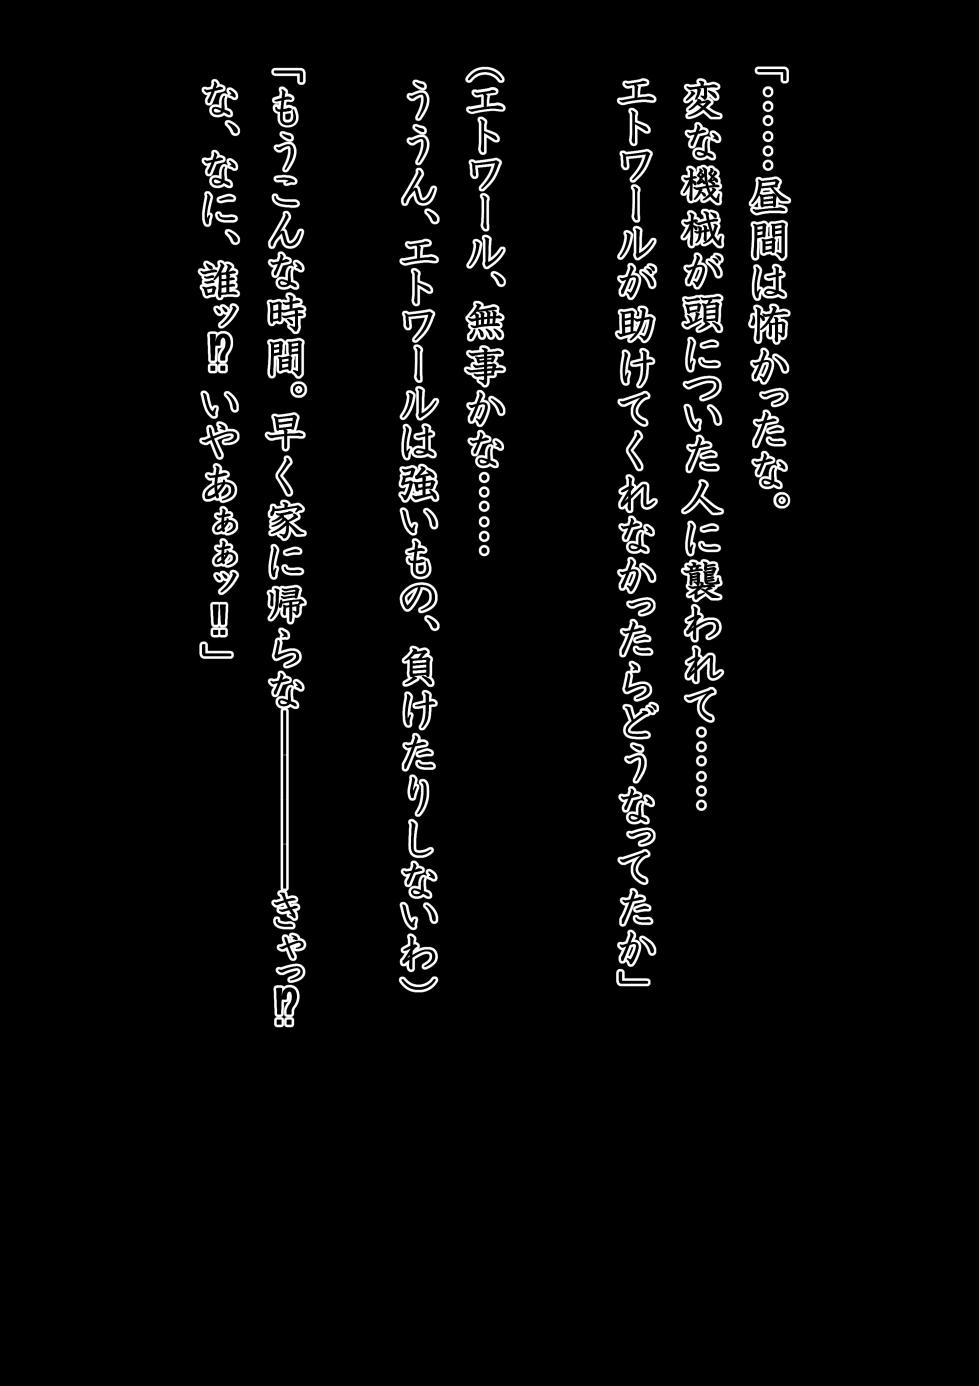 「……昼間は怖かったな。
変な機械が頭についた人に襲われて……
エトワールが助けてくれなかったらどうなってたか」
（エトワール、無事かな……
ううん、エトワールは強いもの、負けたりしないわ）
「もうこんな時間。早く家に帰らな――――きゃっ⁉
な、なに、誰ッ⁉ いやあぁぁッ‼」